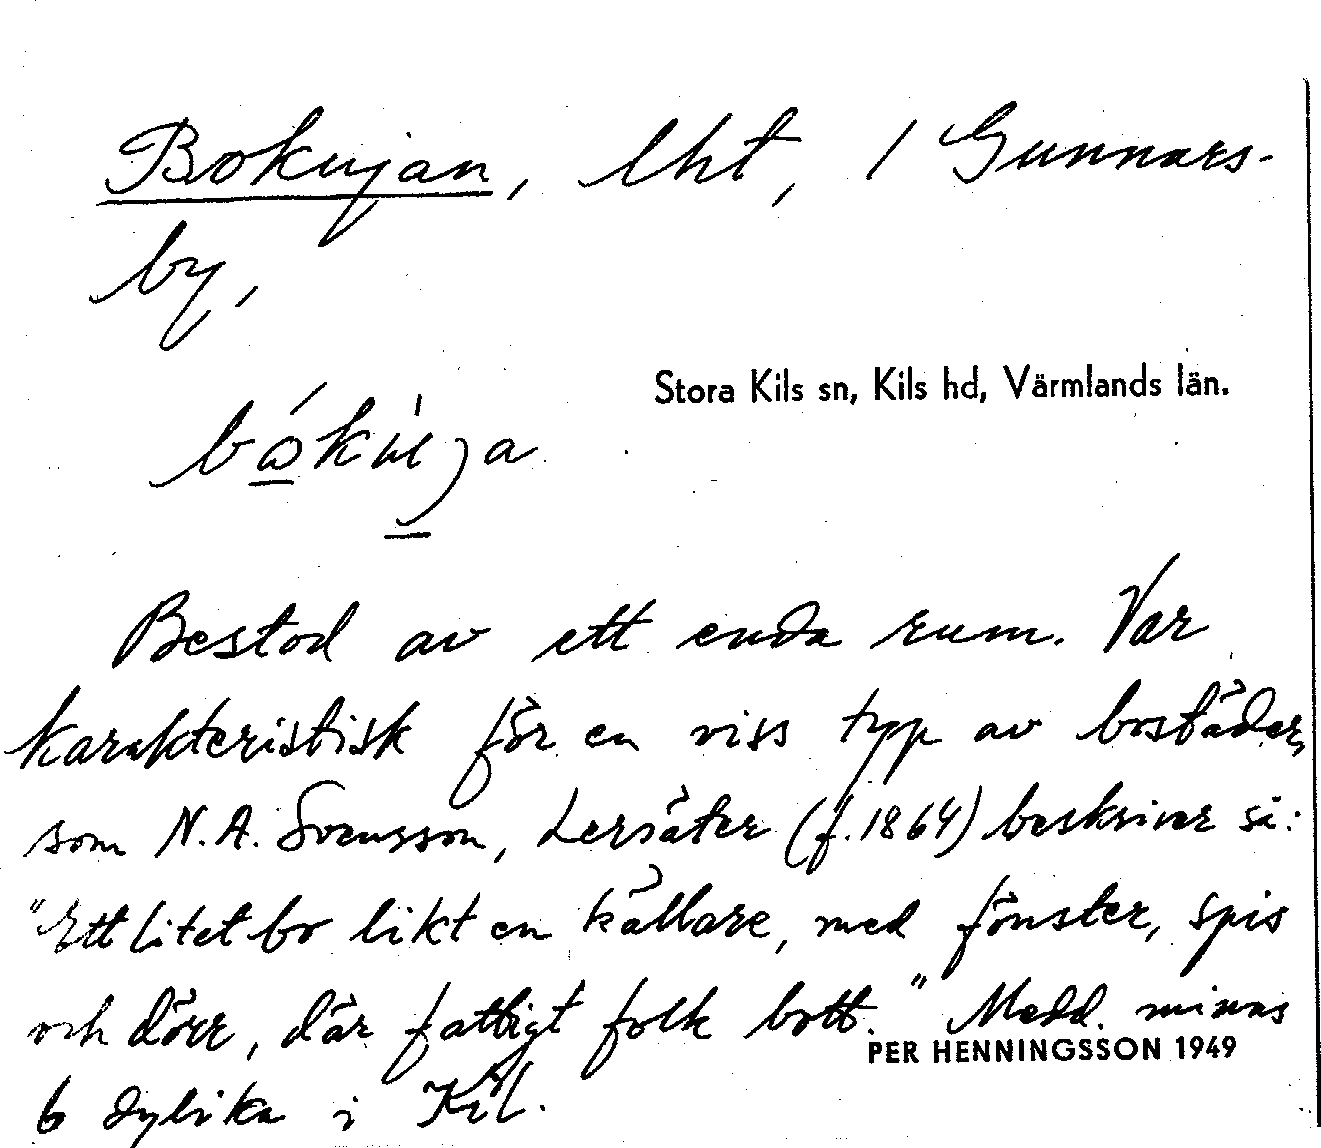 Bokujan, lht, / Gunnars-
by,
Stora Kils sn, Kils hd, Värmlands län.
Bestod av ett enda rum. Var
karakteristisk för en viss typ av bostäder,
som N. A. Svensson, Lersäter (f. 1864) beskriver så:
"Ett litet bo likt en källare, med fönster, spis
och dörr, där fattigt folk bott." Medd. minns
PER HENNINGSSON 1949
6 dylika i Kil.